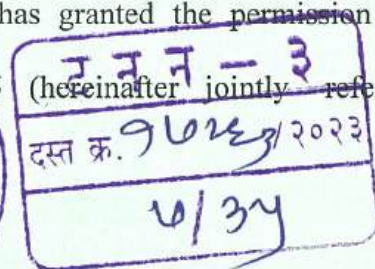 has granted the permission
(hereinafter jointly refe
ट न न - ३
दस्त क्र. /२०२३
७/३५